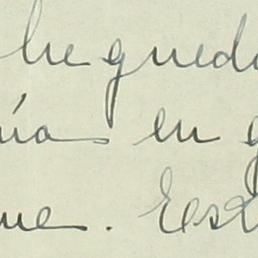 he queda
ías en g
me. Est